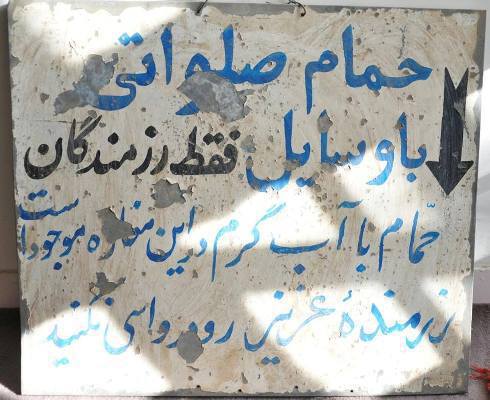 حمام صلواتی
باوسایل فقط رزمندگان
حمّام با آب گرم دراین مغازه موجود است
رزمندهٔ عزیز رودرواسی نکنید